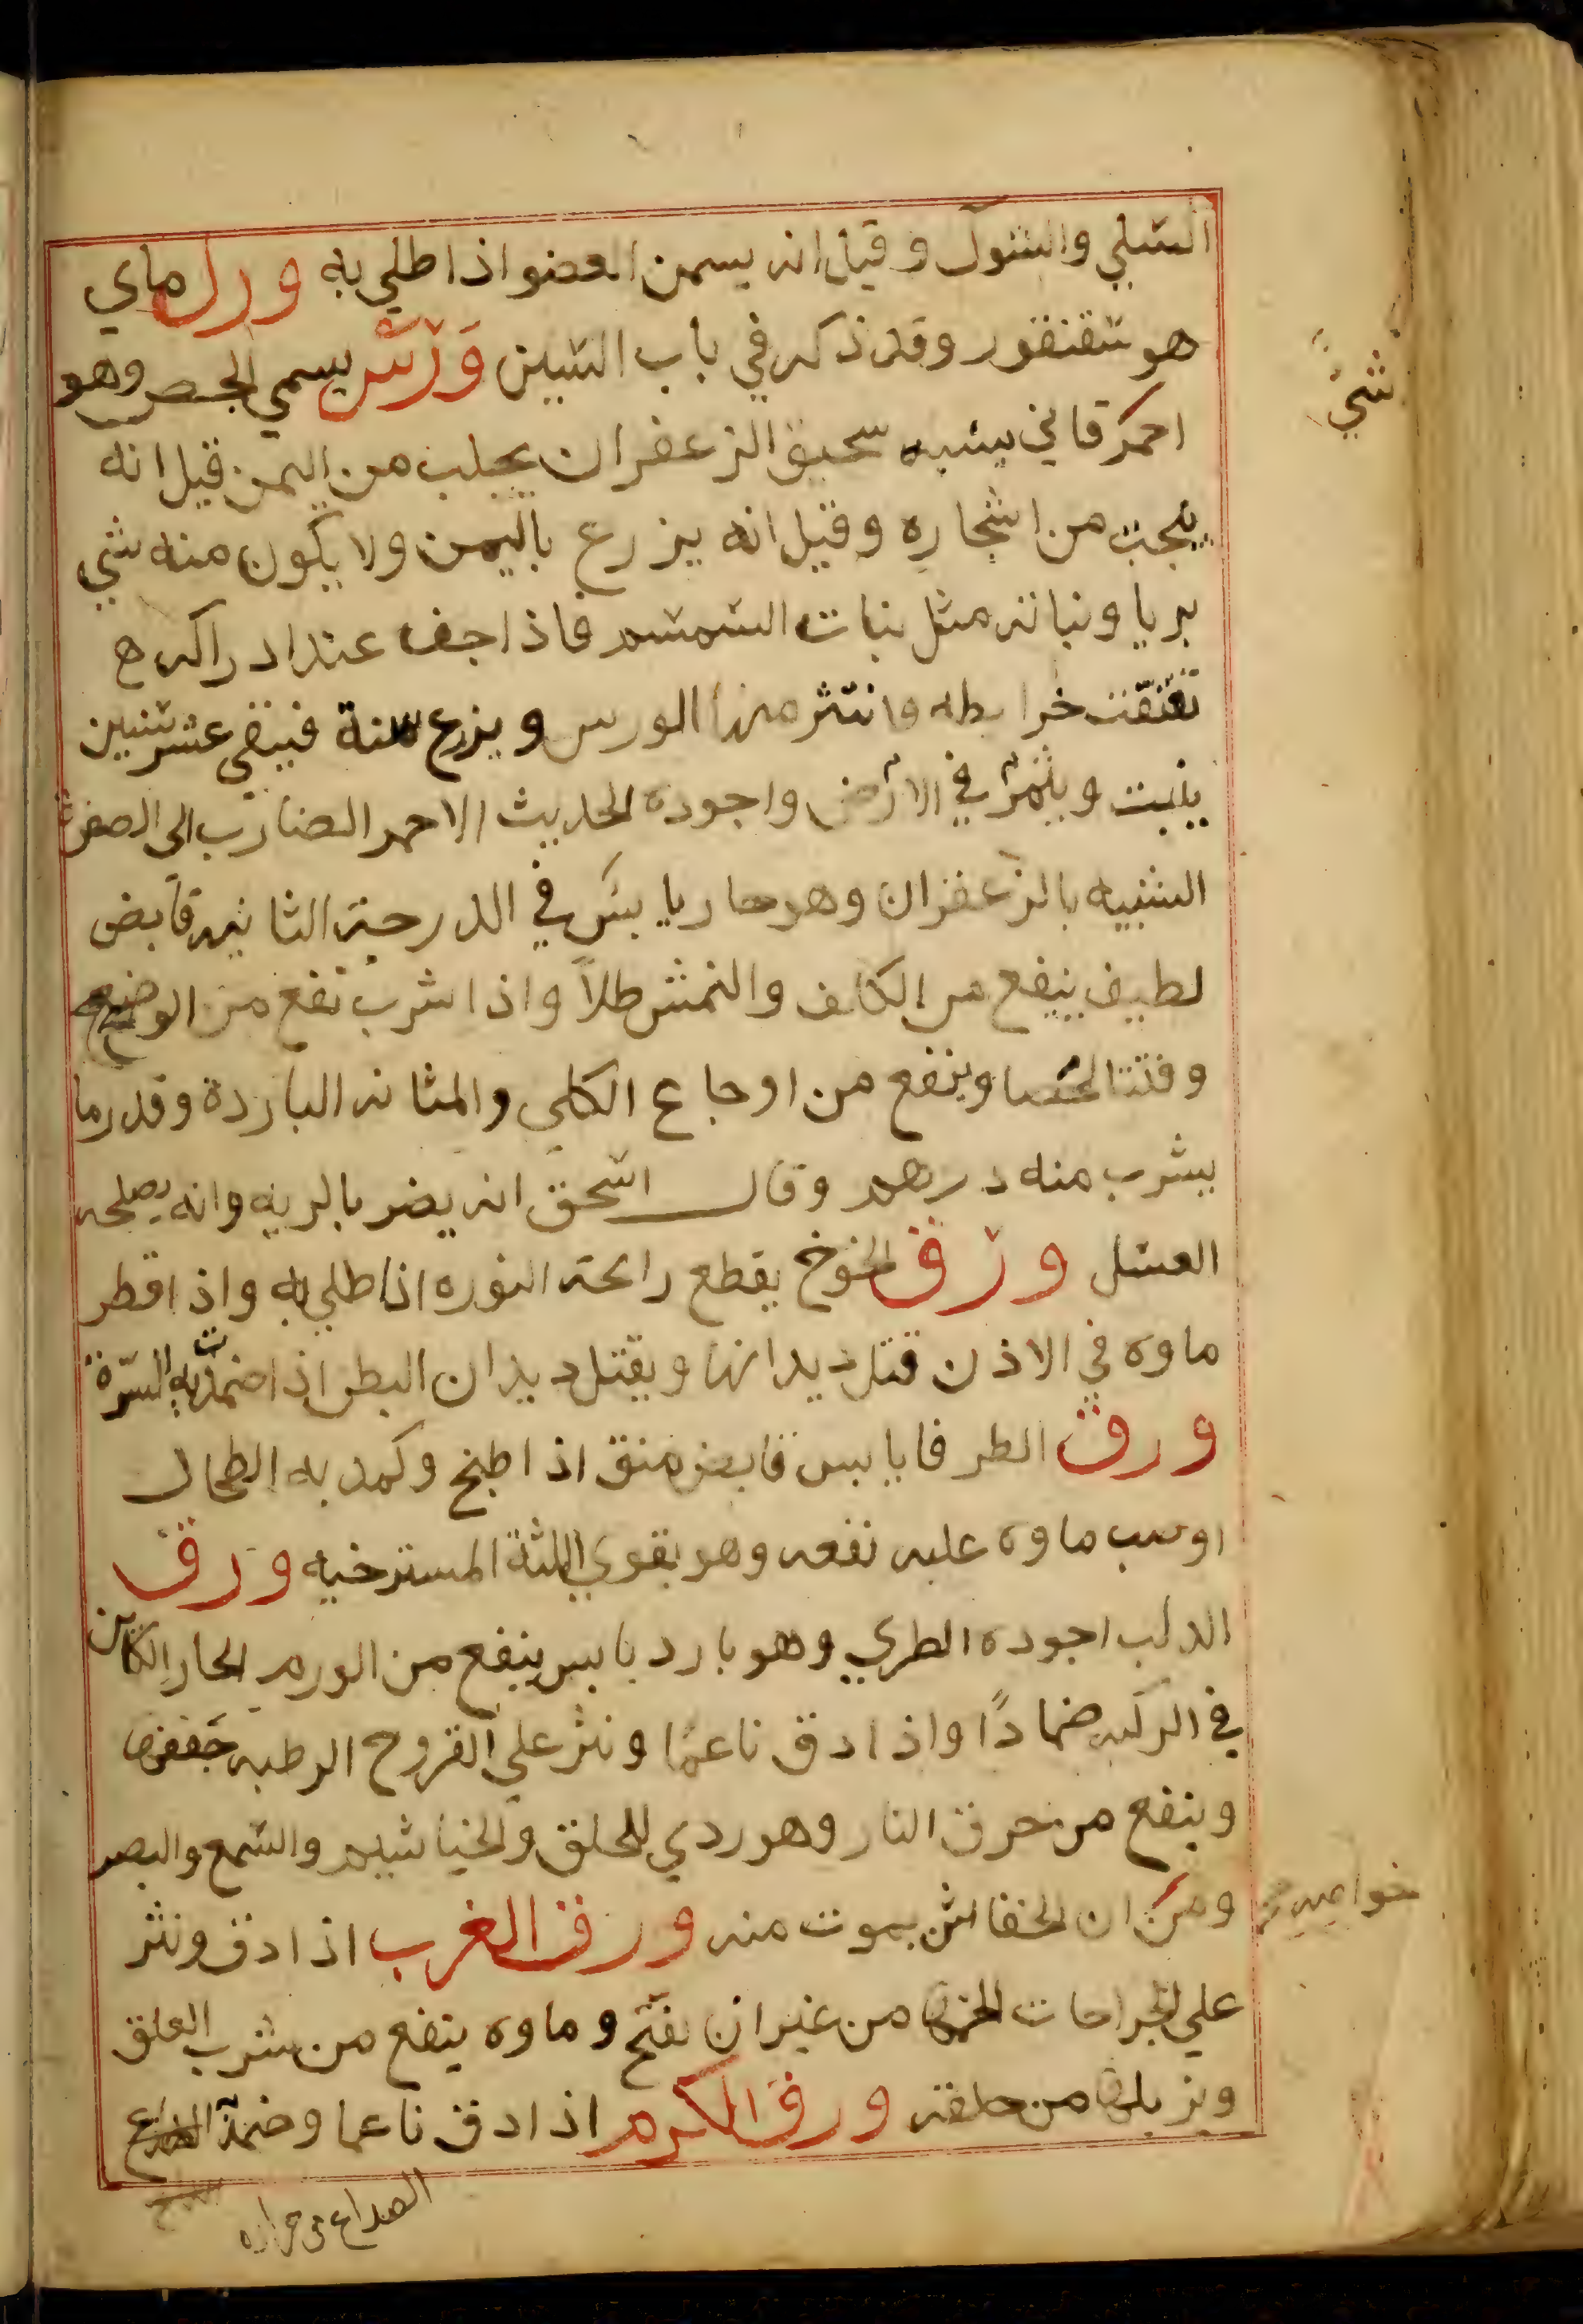 السلي والشوك وقيل انه يسمن العضو اذا طلي به ورل ماي
هو سقنقور وقد ذكر في باب السين ورس يسمي الحص وهو
احمر قاني يشبه سحيق الزعفران يجلب من اليمن قيل انه
ينحت من اشجاره وقيل انه يزرع باليمن ولا يكون منه شي
بريا ونباته مثل نبات السمسم فاذا جف عند ادراكه
تفتقت خرايطه وانتثر منها الورس ويزرع سنة فيبقي عشر سنين
ينبت ويثمر في الارض واجوده الحديث الاحمر الضارب الى الصفرة
الشبيه بالزعفران وهو حار يابس في الدرجة الثانيه قابض
لطيف ينفع من الكلف والنمش طلاً واذا شرب نفع من الوضح
وفتت الحصا وينفع من اوجاع الكلي والمثانه الباردة وقدر ما
يشرب منه درهم وقال اسحق انه يضر بالريه وانه يصلحه
العسل ورق الخوخ يقطع رائحة النوره اذا طلي به واذا قطر
ماوه في الاذن قتل ديدانها ويقتل ديدان البطن اذا ضمدت به السرة
ورق الطرفا يابس قابض منق اذا طبخ وكمد به الطحال
او صب ماوه عليه نفعه وهو يقوي اللثة المسترخيه ورق
الدلب اجوده الطري وهو بارد يابس ينفع من الورم الحار الكائن
في الركبه ضمادًا واذا دق ناعمًا ونثر علي القروح الرطبه جففها
وينفع من حرق النار وهو ردي للحلق والخياشيم والسمع والبصر
ومن ان الخفاش يموت منه ورق الغرب اذا دق ونثر
علي الجراحات من غير ان تفتح وماوه ينفع من شرب العلق
ويزيلها من حلقه ورق الكرم اذا دق ناعما وضمد الصداع
شي
خواصه
الصداع